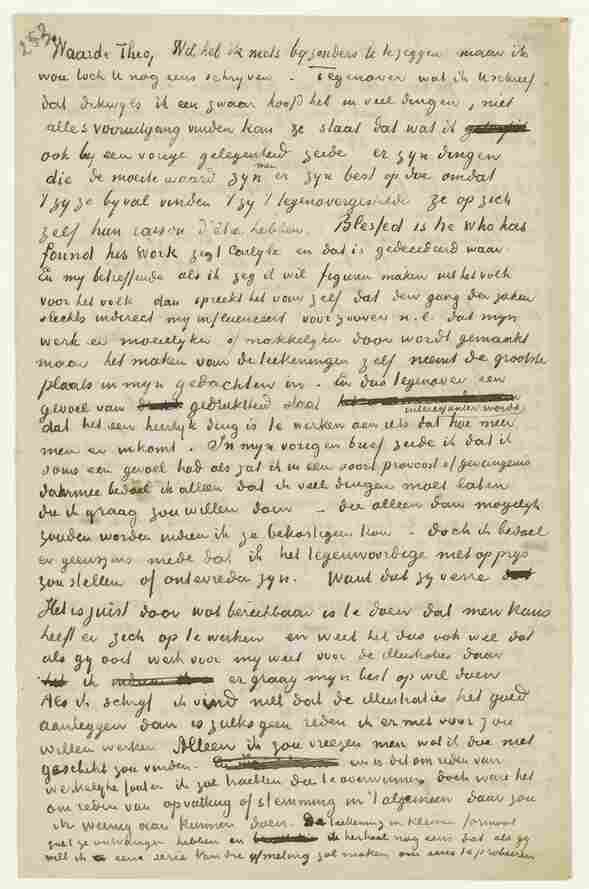 253
Waarde Theo, Wel heb ik niets byzonders te te zeggen maar ik
wou toch U nog eens schryven. Tegenover wat ik U schreef
dat dikwyls ik een zwaar hoofd heb in veel dingen, niet
alles vooruitgang vinden kan ze staat dat wat ik
ook by een vorige gelegenheid zeide er zyn dingen
die de moeite waard zyn men er zyn best op doe omdat
't zy ze byval vinden 't zy 't tegenovergestelde ze op zich
zelf hun raison d'être hebben. Blessed is he who has
found his work zegt Carlyle en dat is gedecideerd waar.
En my betreffende als ik zeg ik wil figuren maken uit het volk
voor het volk dan spreekt het van zelf dat den gang der zaken
slechts indirect my influenceert voor zoover n.l. dat myn
werk er moeielyker of makkelyker door wordt gemaakt
maar het maken van de teekeningen zelf neemt de grootste
plaats in myn gedachten in. En dus tegenover een
gevoel van gedruktheid staat
interessanter wordt
dat het een heerlyk ding is te werken aan iets dat hoe meer
men er inkomt. In myn vorigen brief zeide ik dat ik
soms een gevoel had als zat ik in een soort provoost of gevangenis
daarmee bedoel ik alleen dat ik veel dingen moet laten
die ik graag zou willen doen - die alleen dan mogelyk
zouden worden indien ik ze bekostigen kon. - Doch ik bedoel
er geenszins mede dat ik het tegenwoordige niet op prys
zou stellen of ontevreden zyn. Want dat zy verre
Het is juist door wat bereikbaar is te doen dat men kans
heeft er zich op te werken en weet het dus ook wel dat
als gy ooit werk voor my weet voor de illustratie daar
ik er graag myn best op wil doen
Als ik schryf ik vind niet dat de illustraties het goed
aanleggen dan is zulks geen reden ik er niet voor zou
willen werken Alleen ik zou vreezen men wat ik doe niet
geschikt zou vinden. en is dit om reden van
werkelyke fouten ik zal trachten die te overwinnen doch ware het
om reden van opvatting of stemming in 't algemeen daar zou
ik weinig aan kunnen doen. De teekening in kleine formaat
zult ge ontvangen hebben en ik herhaal nog eens dat als gy
wilt ik eene serie van die afmeting zal maken om eens te probeeren